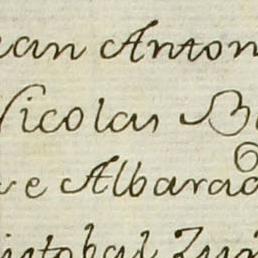 uan Anton
Nicolas B
e Albarad
istobal Zu